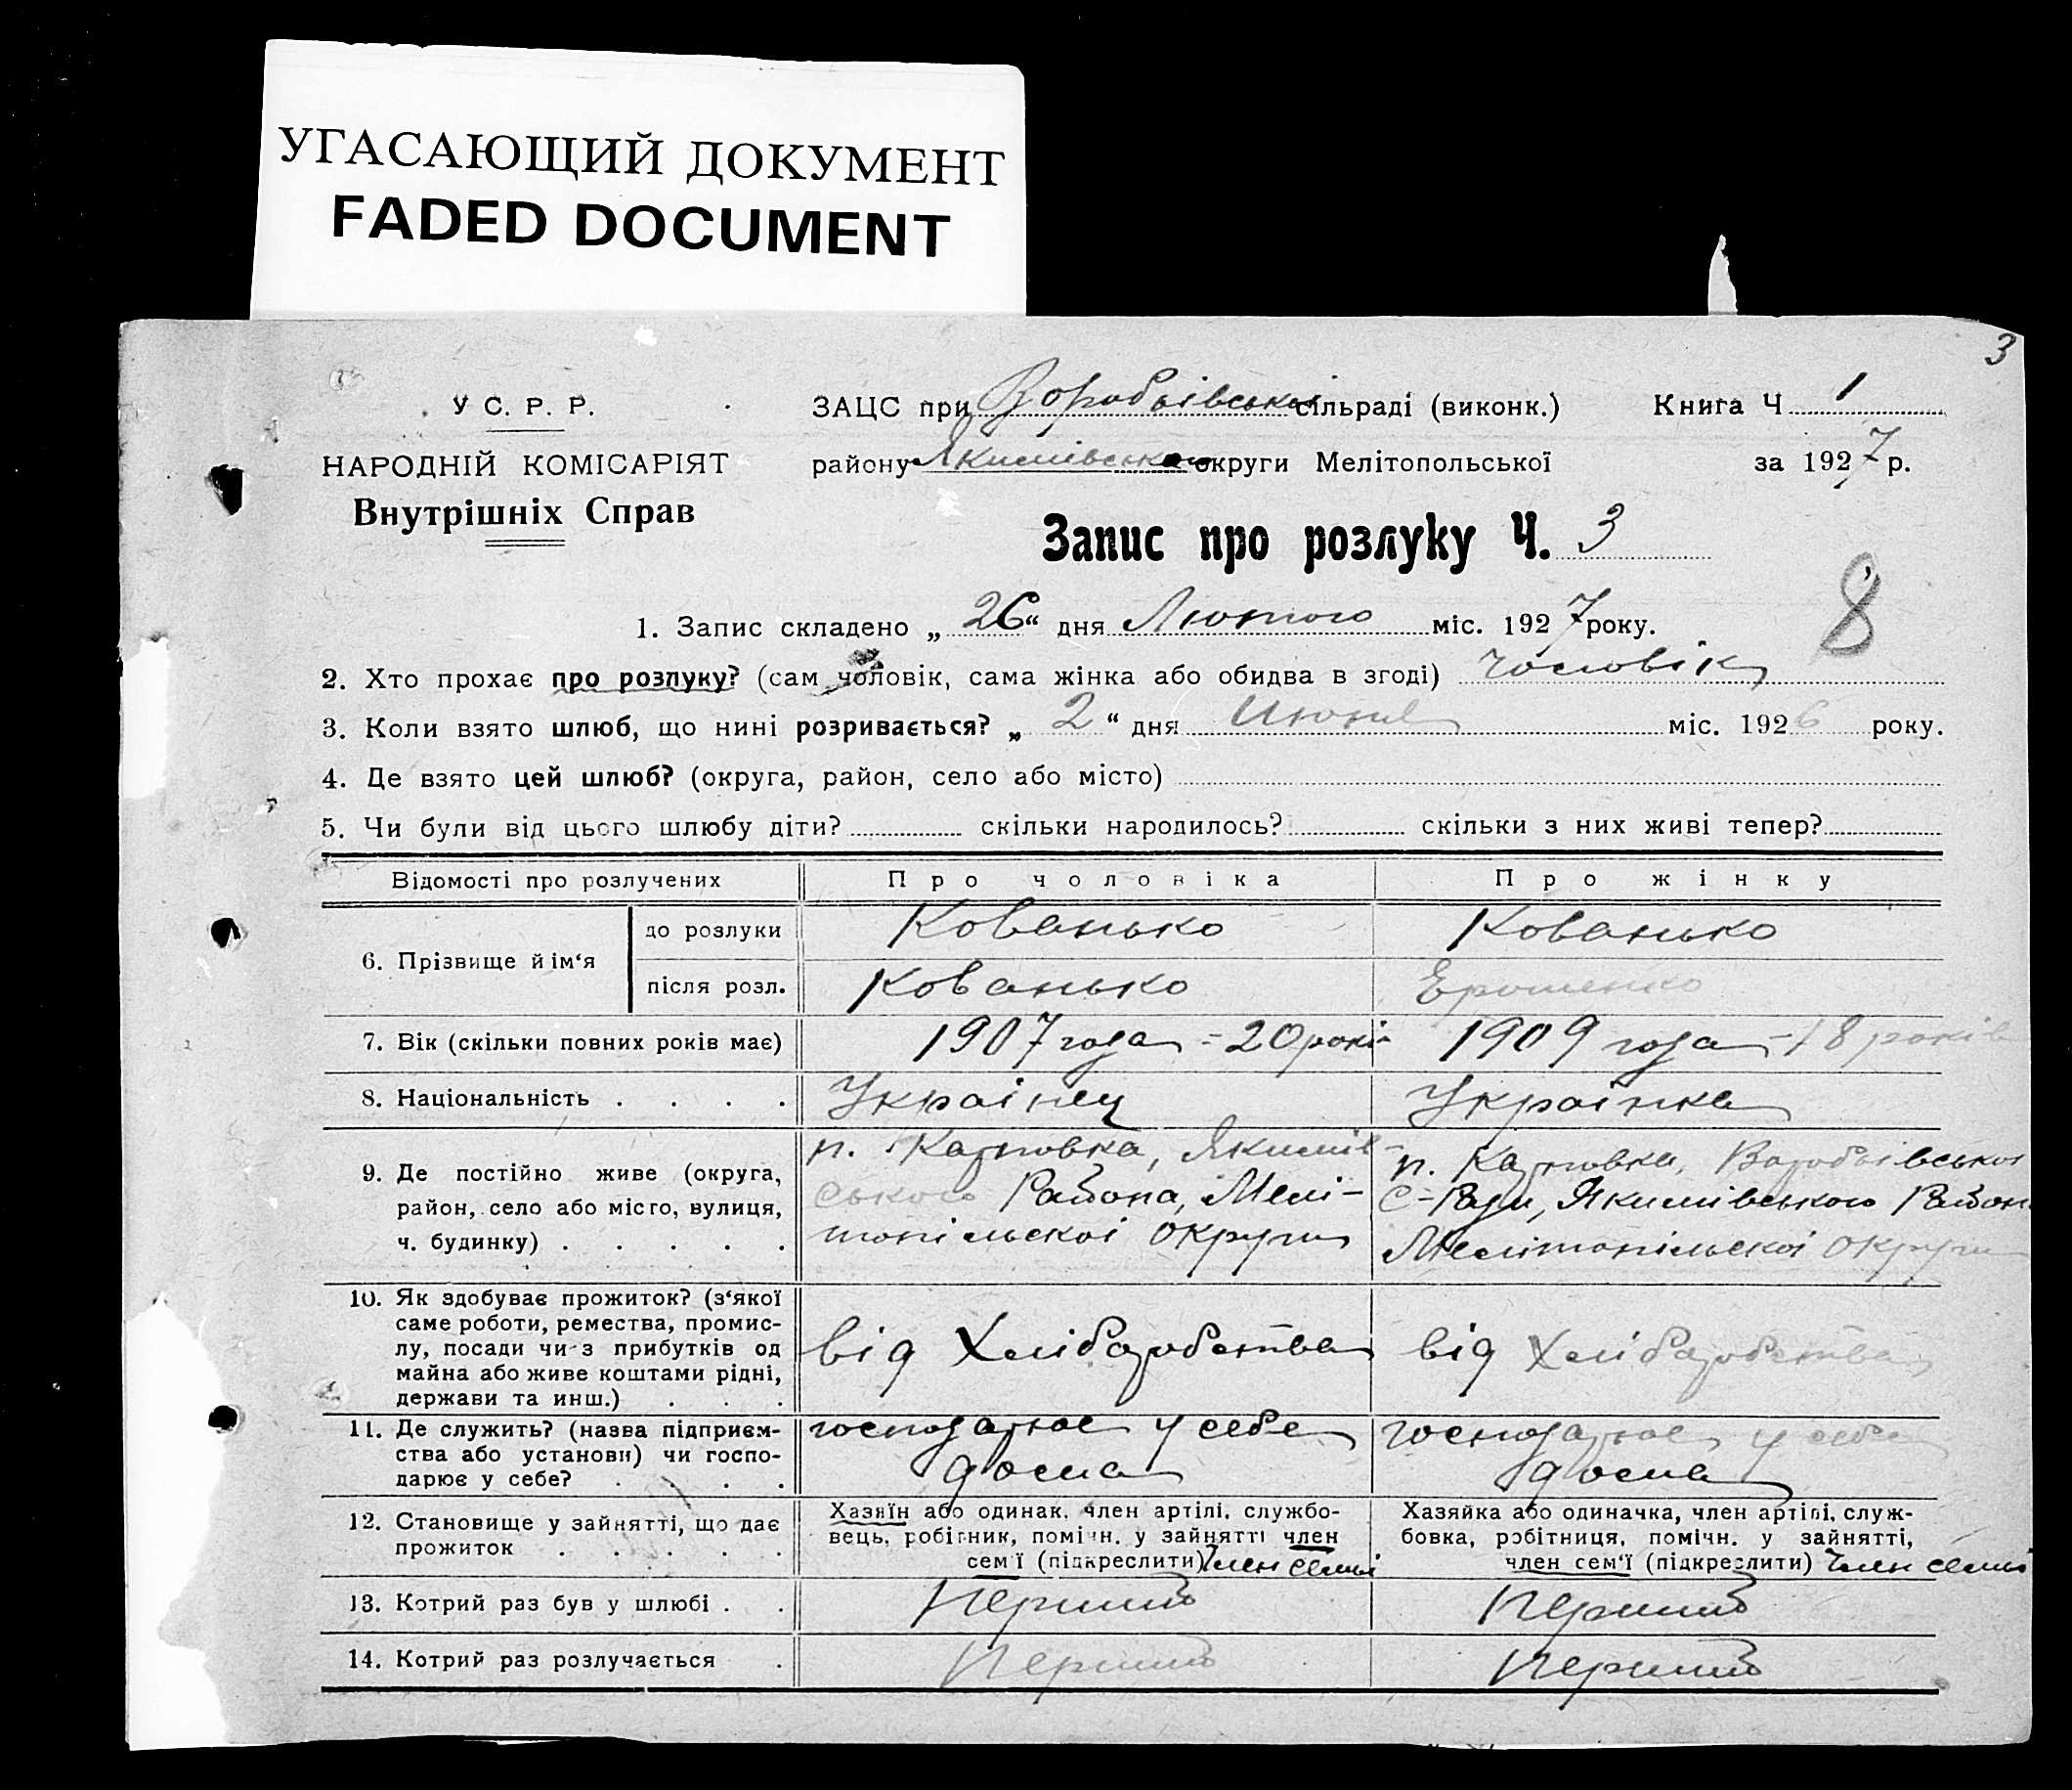 УГАСАЮЩИЙ ДОКУМЕНТ
FADED DOCUMENT
3
У С. Р. Р.
НАРОДНІЙ КОМІСАРІЯТ
Внутрішніх Справ
ЗАЦС при Воробьівській сільраді (виконк.) Книга Ч 1
району Якимівської округи Мелітопольської за 1927 р.
Запис про розлуку Ч. 3
8
1. Запис складено „ 26 “ дня Лютого міс. 1927 року.
2. Хто прохає про розлуку? (сам чоловік, сама жінка або обидва в згоді) чоловік
3. Коли взято шлюб, що нині розривається? „ 2 “ дня Июня міс. 1926 року.
4. Де взято цей шлюб? (округа, район, село або місто)
5. Чи були від цього шлюбу діти? скільки народилось? скільки з них живі тепер?
Відомості про розлучених Про чоловіка Про жінку
6. Прізвище й ім‘я до розлуки Кованько Кованько
після розл. Кованько Ерошенко
7. Вік (скільки повних років має) 1907 года = 20 років 1909 года - 18 років
8. Національність . . . . Українец Українка
9. Де постійно живе (округа, район, село або місто, вулиця, ч. будинку) . . . . .
п. Карповка, Якимів-
ського Району, Мелі-
топільскоі округи
п. Карповка, Воробьівської
С-Ради, Якимівського Району
Мелітопільскоі округи
10. Як здобуває прожиток? (з‘якої
саме роботи, ремества, промис-
лу, посади чи з прибутків од
майна або живе коштами рідні,
держави та инш.) . . .
від Хліборобства від Хліборобства
11. Де служить? (назва підприєм-
ства або установи) чи госпо-
дарює у себе? . . . .
господарює у себе
дома
господарює у себе
дома
12. Становище у зайнятті, що дає
прожиток . . . . .
Хазяїн або одинак, член артілі, службо-
вець, робітник, помічн. у зайнятті член
сем‘ї (підкреслити) Член семьі
Хазяйка або одиначка, член артілі, служ-
бовка, робітниця, помічн. у зайнятті,
член сем‘ї (підкреслити) Член семьі
13. Котрий раз був у шлюбі . . Перший Перший
14. Котрий раз розлучається . Перший Перший